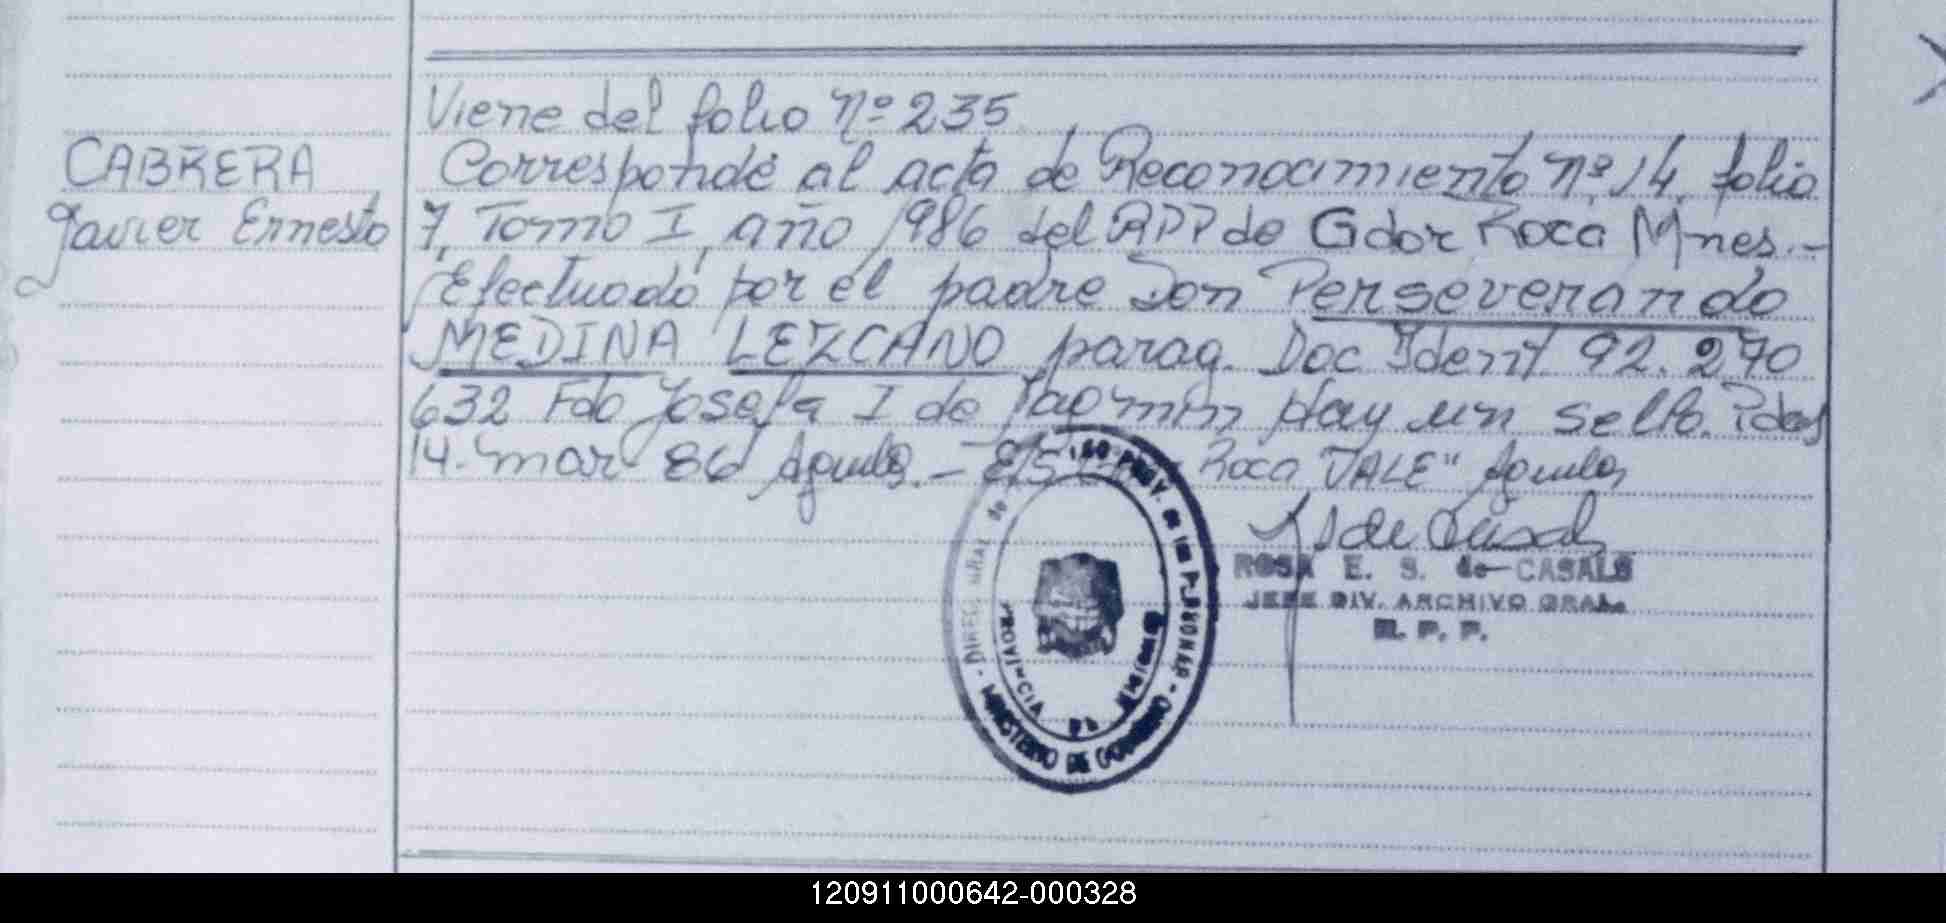 Viene del folio Nº 235
CABRERA
Javier Ernesto
Corresponde al acta de Reconocimiento nº 14, folio
7, Tomo I, año 1986 del RPP de Gdor Roca Mnes.-
Efectuado por el padre Don Perseverando
MEDINA LEZCANO parag. Doc Ident 92.270
632 Fdo Josefa I de Hay un sello. Pdas
14-mar 86 - Roca VALE"
ROSA E. S. de CASALS
JEFE DIV. ARCHIVO GRAL.
R. P. P.
PROVINCIA DE MISIONES
MINISTERIO DE GOBIERNO
120911000642-000328